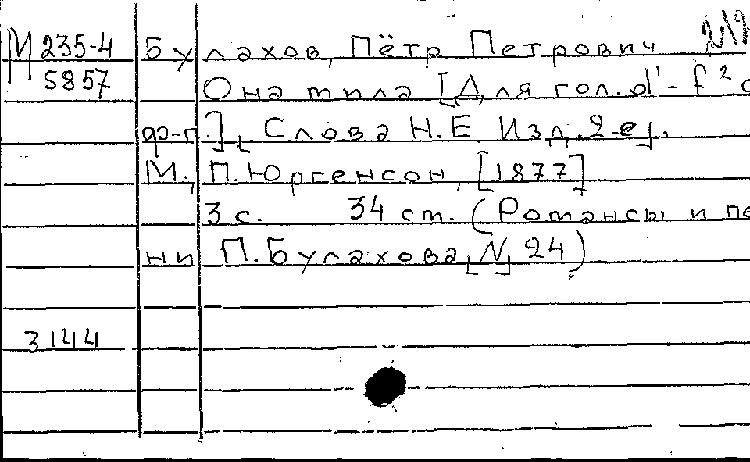 М 235-4 Булахов, Пётр Петрович
5857 Она мила [Для гол. d¹-f² с
ф-п.]. Слова Н.Е. Изд. 2-е.
М., П. Юргенсон, [1877]
3 с. 34 см. (Романсы и пе
ни П. Булахова, № 24)
3144